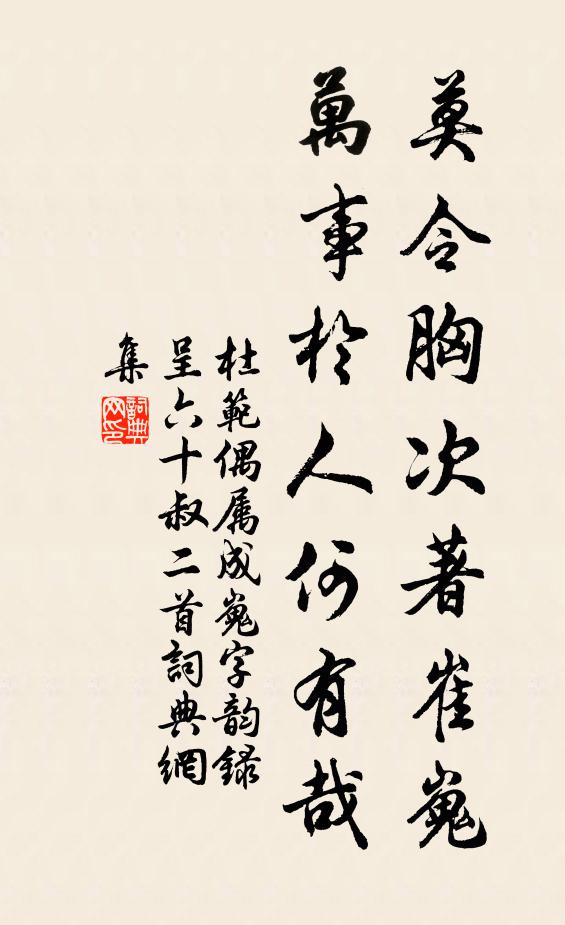 莫令胸次著崔嵬
萬事於人何有哉
杜範偶属成嵬字韵録
呈六十叔二首詞典網
集
詞典
网印